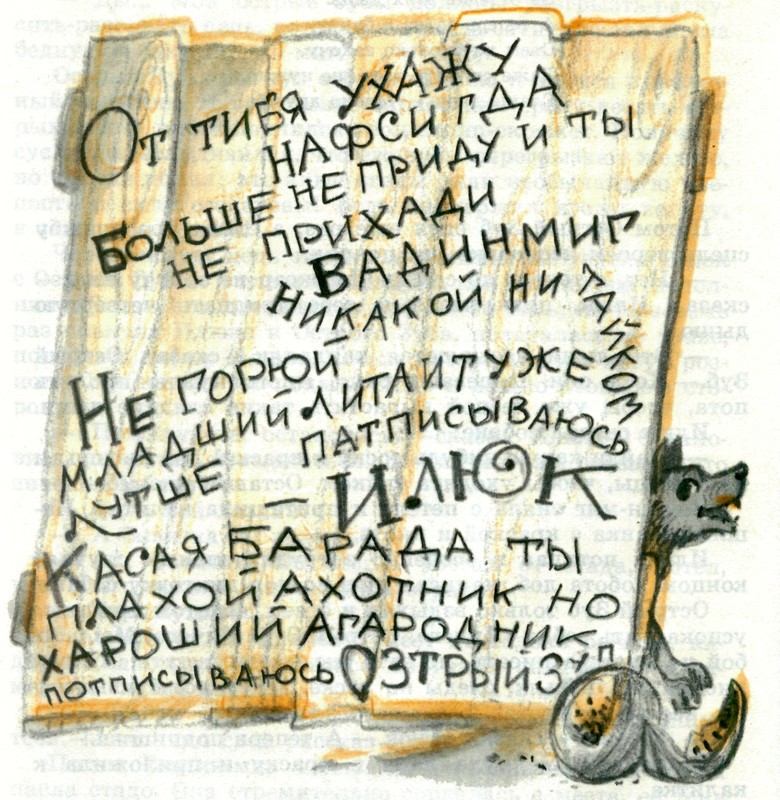 ОТ ТИБЯ УХАЖУ
НАФСИГДА
БОЛЬШЕ НЕ ПРИДУ И ТЫ
НЕ ПРИХАДИ
ВАДИНМИГ
НИКАКОЙ НИ ГАЙКОМ
НЕ ГОРЮЙ –
МЛАДШИЙ ЛИТАИТ УЖЕ
ЛУТШЕ – ПАТПИСЫВАЮСЬ
– ИЛЮК
КАСАЯ БАРАДА ТЫ
ПЛАХОЙ АХОТНИК НО
ХАРОШИЙ АГАРОДНИК
ПОТПИСЫВАЮСЬ ОЗТРЫЙ ЗУП